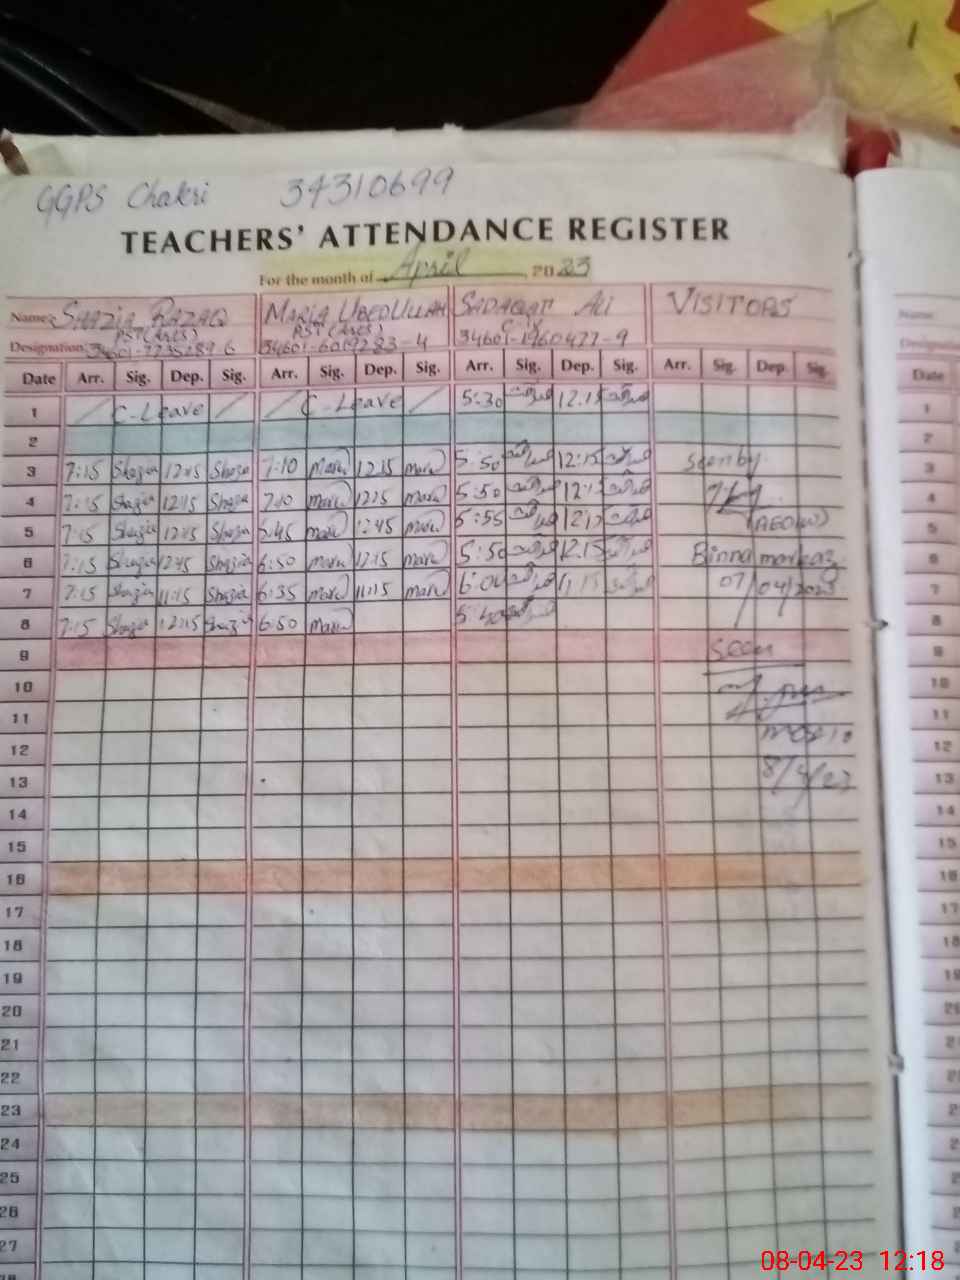 GGPS Chakri 34310699
TEACHERS' ATTENDANCE REGISTER
For the month of April, 2023
Name: SHAZIA RAZAQ MARIA UBEDULLAH SADAQAT ALI VISITORS
PST (AR&S) PST (AR&S) C-IV
Designation 34601-6019283-4 34601-1960477-9
Date Arr. Sig. Dep. Sig. Arr. Sig. Dep. Sig. Arr. Sig. Dep. Sig. Arr. Sig. Dep. Sig.
1 C-Leave C-Leave 5:30 12.15
2
3 7:15 Shazia 12:15 Shazia 7:10 Maria 12:15 Maria 5:50 12:15 Seen by
4 7:15 Shazia 12:15 Shazia 7:10 Maria 12:15 Maria 5:50 12:15
5 7:15 Shazia 12:15 Shazia 6:45 Maria 12:45 Maria 5:55 12:15 (AEO(W))
6 7:15 Shazia 12:45 Shazia 6:50 Maria 12:15 Maria 5:50 12.15 Binna markaz
7 7:15 Shazia 11:15 Shazia 6:35 Maria 11:15 Maria 6:00 11:15 07/04/2023
8 7:15 Shazia 12:15 Shazia 6:50 Maria 5:40
9 Seen
10
11
12
13 8/4/23
14
15
16
17
18
19
20
21
22
23
24
25
26
27
Name:
Designation
Date
1
2
3
4
5
6
7
8
9
10
11
12
13
14
15
16
17
18
08-04-23 12:18